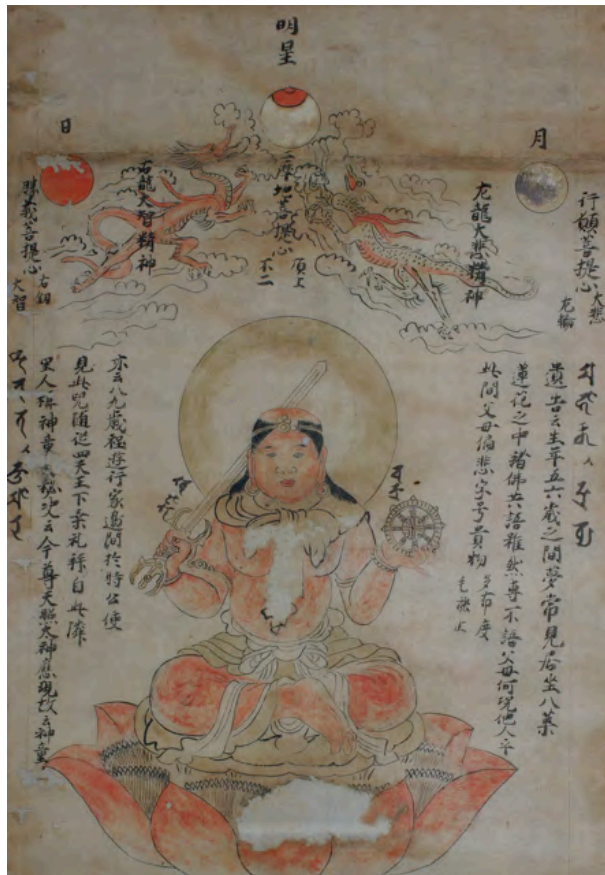 明星
月
日
行願菩提心
大悲
左輪
左龍大悲精神
三摩地菩提心
頂上
不二
右龍大智精神
勝義菩提心
右釼
大智
遺告云生年五六歳之間夢常見居坐八葉
蓮花之中諸佛共語雖然專不語父母何况他人乎
此間父母偏悲字号貴物
多布度
毛能止
亦云八九歳程遊行家邊間於時公使
見此児随従四天王下乗礼拝自此隣
里人称神童
今尊天照太神應現故云神童